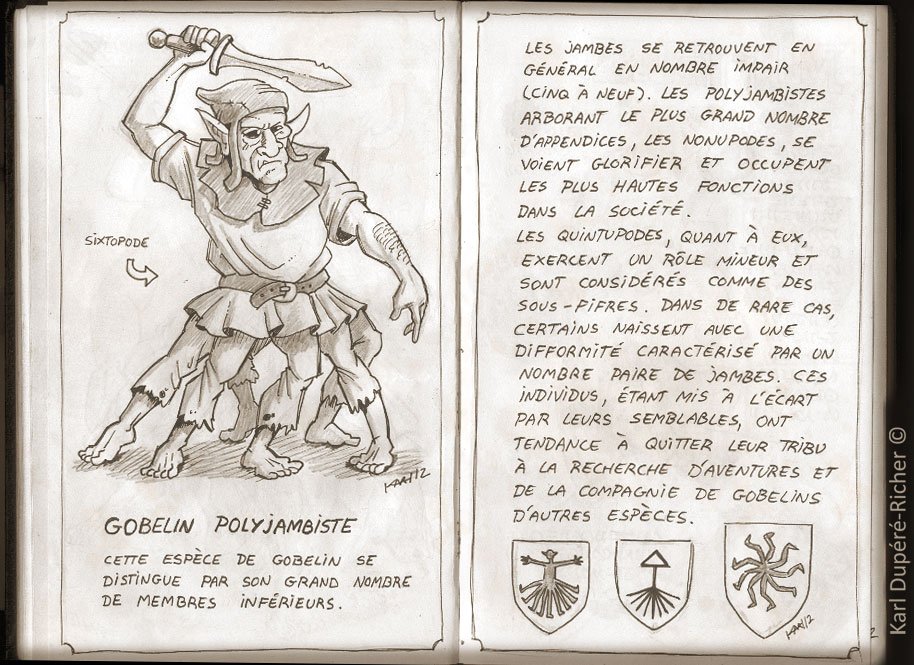 SIXTOPODE
KARL/12
GOBELIN POLYJAMBISTE
CETTE ESPÈCE DE GOBELIN SE
DISTINGUE PAR SON GRAND NOMBRE
DE MEMBRES INFÉRIEURS.
LES JAMBES SE RETROUVENT EN
GÉNÉRAL EN NOMBRE IMPAIR
(CINQ À NEUF). LES POLYJAMBISTES
ARBORANT LE PLUS GRAND NOMBRE
D'APPENDICES, LES NONUPODES, SE
VOIENT GLORIFIER ET OCCUPENT
LES PLUS HAUTES FONCTIONS
DANS LA SOCIÉTÉ.
LES QUINTUPODES, QUANT À EUX,
EXERCENT UN RÔLE MINEUR ET
SONT CONSIDÉRÉS COMME DES
SOUS-FIFRES. DANS DE RARE CAS,
CERTAINS NAISSENT AVEC UNE
DIFFORMITÉ CARACTÉRISÉ PAR UN
NOMBRE PAIRE DE JAMBES. CES
INDIVIDUS, ÉTANT MIS À L'ÉCART
PAR LEURS SEMBLABLES, ONT
TENDANCE À QUITTER LEUR TRIBU
À LA RECHERCHE D'AVENTURES ET
DE LA COMPAGNIE DE GOBELINS
D'AUTRES ESPÈCES.
KARL/12
2
Karl Dupéré-Richer ©